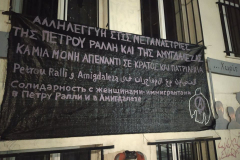 ΑΛΛΗΛΕΓΓΥΗ ΣΤΙΣ ΜΕΤΑΝΑΣΤΡΙΕΣ
ΤΗΣ ΠΕΤΡΟΥ ΡΑΛΛΗ ΚΑΙ ΤΗΣ ΑΜΥΓΔΑΛΕΖΑΣ
ΚΑΜΙΑ ΜΟΝΗ ΑΠΕΝΑΝΤΙ ΣΕ ΚΡΑΤΟΣ ΚΑΙ ΠΑΤΡΙΑΡΧΙΑ
Petrou Ralli & Amigdaleza
Солидарность с женщинами-иммигрантами
в Петру Ралли и в Амигдалезе